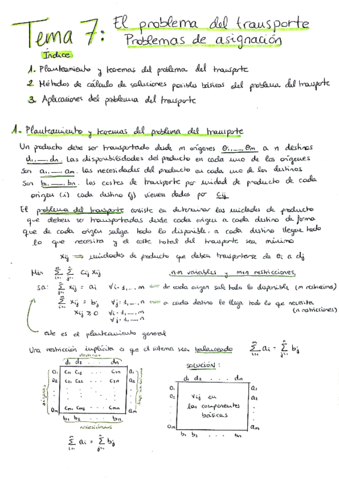 Tema 7: El problema del transporte
Problemas de asignación
Índice
1. Planteamiento y teoremas del problema del transporte
2. Métodos de cálculo de soluciones posibles básicas del problema del transporte
3. Aplicaciones del problema del transporte
1. Planteamiento y teoremas del problema del transporte
Un producto debe ser transportado desde m orígenes O₁,...,Oₘ a n destinos
d₁,...,dₙ. Las disponibilidades del producto en cada uno de los orígenes
son a₁,...,aₘ. Las necesidades del producto en cada uno de los destinos
son b₁,...,bₙ. Los costes de transporte por unidad de producto de cada
origen (i) a cada destino (j) vienen dados por cij
El problema del transporte consiste en determinar las unidades de producto
que deben ser transportadas desde cada origen a cada destino de forma
que de cada origen salga todo lo disponible, a cada destino llegue todo
lo que necesita y el coste total del transporte sea mínimo
xij ⟹ unidades de producto que deben transportarse de Oi a dj
Min Σ Σ cij xij n·m variables y m+n restricciones
s.a: Σ xij = ai ∀i=1,...,m ⟹ de cada origen sale todo lo disponible (m restricciones)
Σ xij = bj ∀j=1,...,n ⟹ a cada destino le llega todo lo que necesita
xij ≥ 0 ∀i=1,...,m (n restricciones)
∀j=1,...,n
este es el planteamiento general
Una restricción implícita es que el sistema sea balanceado Σ ai = Σ bj
destinos
solución:
d₁ d₂ ... dn
d₁ d₂ ... dn
a₁ c11 c12 ... c1n
xij en
las componentes
básicas
am cm1 cm2 ... cmn
b₁ b₂ ... bn
necesidades
Σ ai = Σ bj